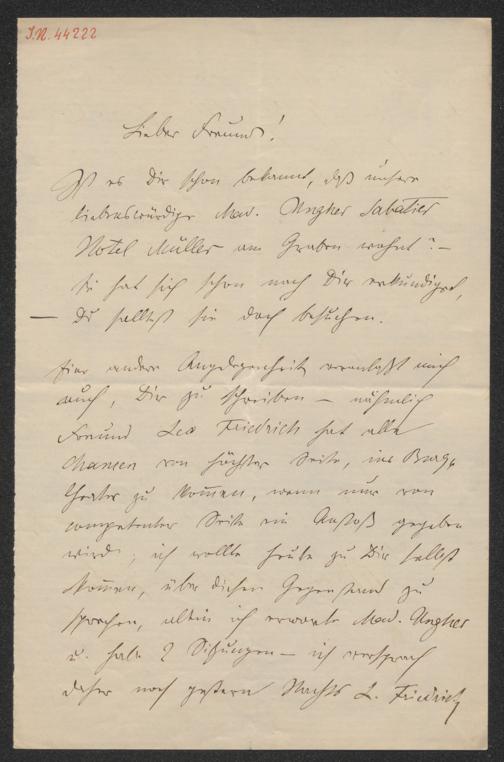 I.N. 44222
Lieber Freund!
Ist es Dir schon bekannt, daß unsere
liebenswürdige Mad. Ungher Sabatier
Hotel Müller am Graben wohnt? –
Sie hat sich schon nach Dir erkundiget,
– Du solltest sie doch besuchen.
Eine andere Angelegenheit veranlaßt mich
auch, Dir zu schreiben – nähmlich
Freund Leo Friedrich hat alle
Chancen von höchster Seite, ins Burg-
theater zu kommen, wenn nur von
competenter Seite ein Anstoß gegeben
wird; ich wollte heute zu Dir selbst
kommen, über diesen Gegenstand zu
sprechen, allein ich erwarte Mad. Ungher
u. habe 2 Sitzungen – ich versprach
daher noch gestern Nachts L. Friedrich